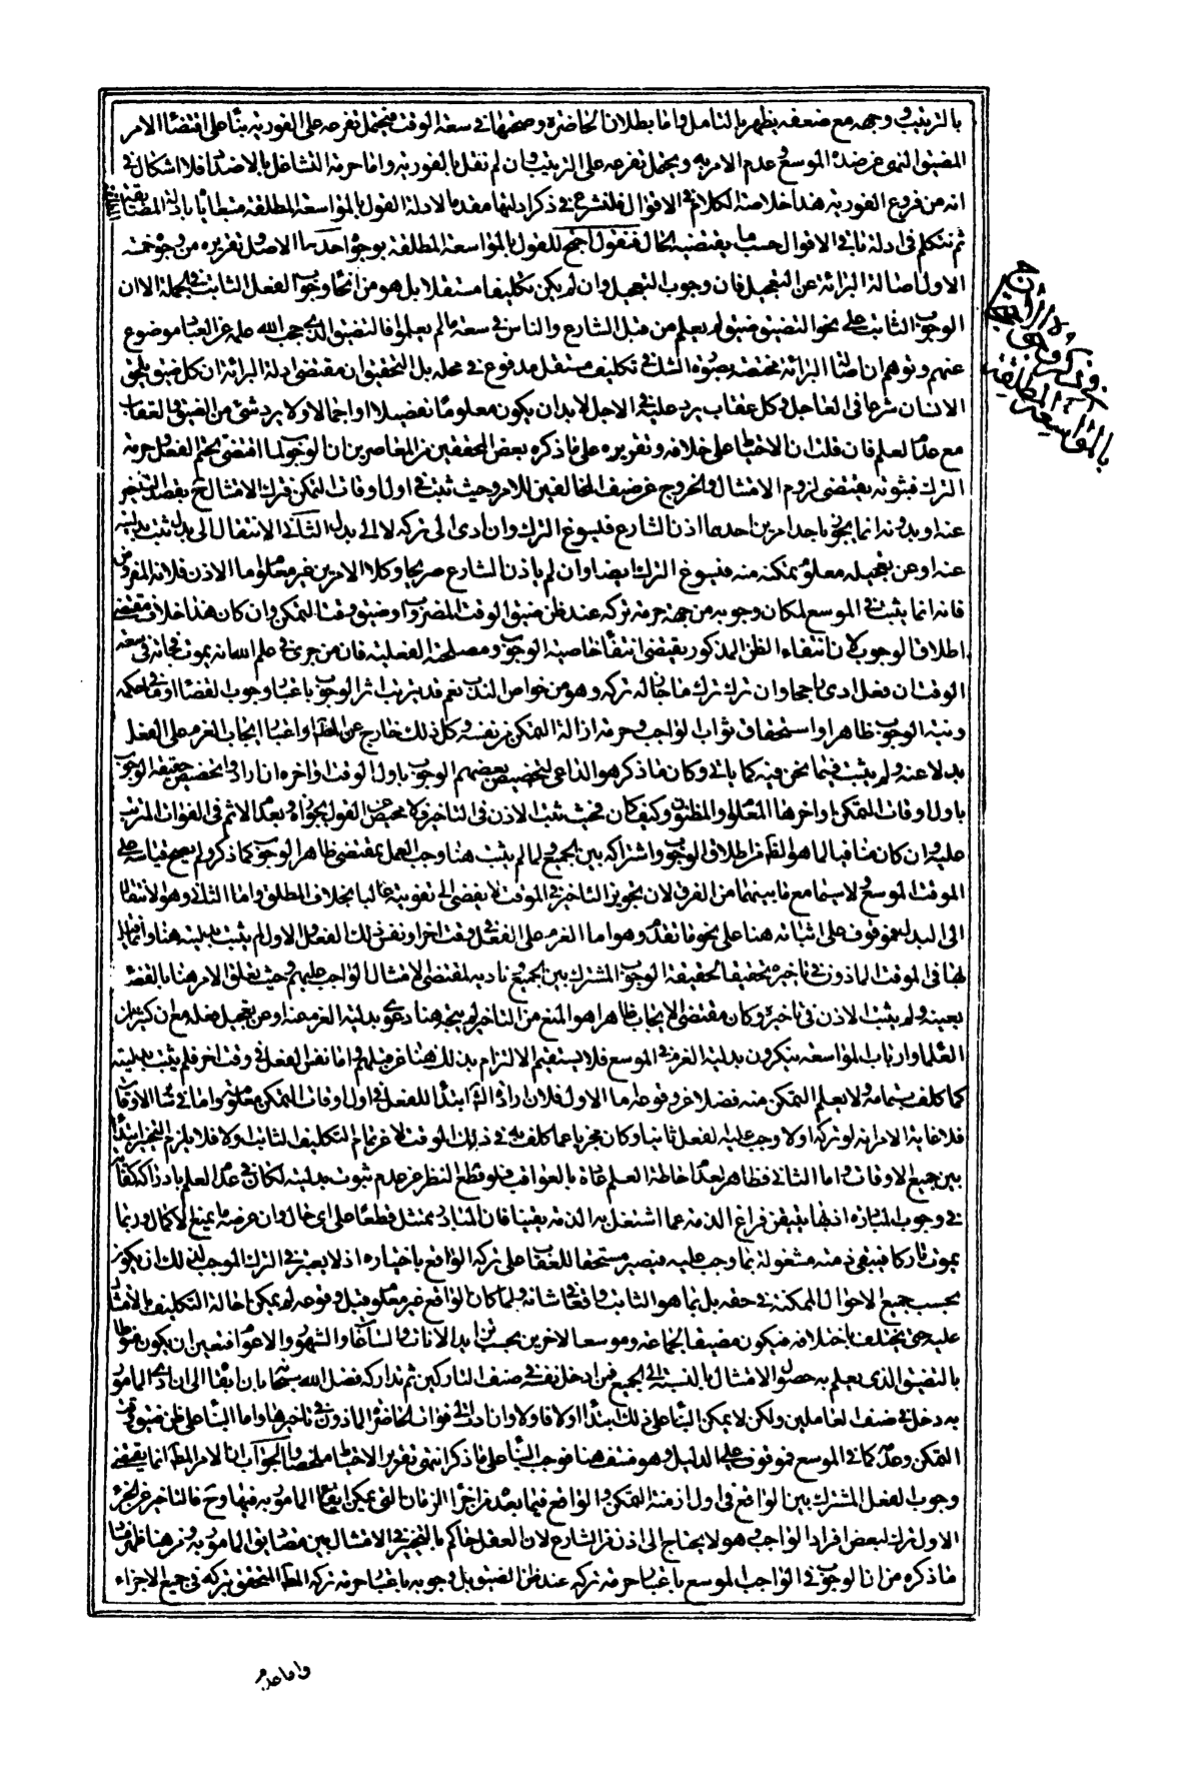 بالترتيب ووجهه مع ضعفه يظهر بالتامل واما بطلان الحاضرة وصحتها في سعة الوقت فيحتمل تفرعه على الفورية بناء على اقتضاء الامر
المضيق النهي عن ضده الموسع او عدم الامر به ويحتمل تفرعه على الترتيب وان لم نقل بالفورية واما حرمة التشاغل بالاضداد فلا اشكال في
انه من فروع الفورية هذا خلاصة الكلام في الاقوال فلنشرع في ذكر ادلتها مقدما لادلة القول بالمواسعة المطلقة
ثم نتكلم في ادلة باقي الاقوال حسب ما يقتضيه الحال فنقول احتج للقول بالمواسعة المطلقة بوجوه احدها الاصل وتقريره من وجوه خمسة
الاول اصالة البرائة عن التعجيل فان وجوب التعجيل وان لم يكن تكليفا مستقلا بل هو من انحاء وجوب الفعل الثابت في الجملة الا ان
الوجوب الثابت على نحو التضيق ضيق لم يعلم من قبل الشارع والناس في سعة ما لم يعلموا فالتضيق الذي حجب الله علمه عن العباد موضوع
عنهم وتوهم ان اصالة البرائة مختصة بصورة الشك في تكليف مستقل مدفوع في محله بل التحقيق ان مقتضى ادلة البرائة ان كل ضيق يلحق
الانسان شرعا في العاجل وكل عقاب يرد عليه في الاجل لا بد ان يكون معلوما تفصيلا او اجمالا ولا يرد شيء من الضيق والعقاب
مع عدم العلم فان قلت ان الاحتياط على خلافه وتقريره على ما ذكره بعض المحققين من المعاصرين ان الوجوب لما اقتضى تحتم الفعل وحرمة
الترك فثبوته يقتضي لزوم الامتثال والخروج عن ضيق المخالفين للامر وحيث ثبت في اول اوقات التمكن فترك الامتثال ح بقصد التاخير
عنه او بدونه انما يجوز باحد امرين احدهما اذن الشارع فيسوغ الترك وان ادى الى تركه لا الى بدل الثاني الانتقال الى بدل ثبت بدليته
عنه او عن تعجيله معلوم تمكنه منه فيسوغ الترك ايضا وان لم ياذن الشارع صريحا وكلا الامرين غير معلوم اما الاذن فلانه المفروض
فانه انما يثبت في الموسع لمكان وجوبه من جهة حرمة تركه عند ظن ضيق الوقت المضروب او ضيق وقت التمكن وان كان هذا خلاف مقتضى
اطلاق الوجوب لان انتفاء الظن المذكور يقتضي انتفاء خاصية الوجوب ومصلحته الفعلية فان من جرى في علم الله انه يموت فجأة في سعة
الوقت ان فعل ادى راجحا وان ترك ترك ما جاز له تركه وهو من خواص الندب نعم قد يترتب اثر الوجوب باعتبار وجوب القضاء او ما في حكمه
ونية الوجوب ظاهرا واستحقاق ثواب الواجب وحرمة ازالة التمكن من نفسه وكل ذلك خارج عن المط او اعتبار ايجاب العزم على الفعل
بدلا عنه ولم يثبت فيما نحن فيه كما ياتي وكان ما ذكر هو الداعي لتخصيص بعضهم الوجوب باول الوقت او اخره ان اراد تخصيص حقيقة الوجوب
باول اوقات التمكن واخرها المعلوم والمظنون وكيف كان فحيث ثبت الاذن في التاخير فلا محيص عن القول بجوازه وبعدم الاثم في الفوات المترتب
عليه وان كان منافيا لما هو الظ من اطلاق الوجوب واشتراكه بين الجميع ولما لم يثبت هنا وجب العمل بمقتضى ظاهر الوجوب كما ذكر ولم يصح قياسه على
الموقت الموسع لا سيما مع ما بينهما من الفرق لان تجويز التاخير في الموقت لا يفضي الى تفويته غالبا بخلاف المطلق واما الثاني وهو الانتقال
الى البدل فموقوف على اثباته هنا على نحو ما تقدم وهو اما العزم على الفعل في وقت اخر او نفس ذلك الفعل والاول لم يثبت بدليته هنا وانما
لها في الموقت الماذون في تاخيره تحقيقا لحقيقة الوجوب المشترك بين الجميع وتادية لمقتضى الامتثال الواجب عليهم وحيث تعلق الامر هنا بالقضاء
بعينه ولم يثبت الاذن في تاخيره وكان مقتضى الايجاب ظاهرا هو المنع من التاخير لم يتجه هنا دعوى بدلية العزم عنه او عن تعجيل فعله مع ان كثيرا من
العلماء وارباب المواسعة ينكرون بدلية العزم في الموسع فلا يستقيم الالتزام بذلك هنا عن قبلهم واما نفس الفعل في وقت اخر فلم يثبت بدليته
كما كلف بتمامه ولا يعلم التمكن منه فضلا عن وقوعه اما الاول فلان اراد البدل ابتداء للفعل في اول اوقات التمكن معلومة واما في ساير الاوقات
فلا غاية الامر انه لو تركه اولا وجب عليه الفعل ثانيا وكان مجزيا عما كلف به في ذلك الوقت لا عن تمام التكليف الثابت اولا فلا يلزم التخيير ابتداء
بين جميع الاوقات واما الثاني فظاهر بعدم احاطة العلم عادة بالعواقب فلو قطع النظر عن عدم ثبوت بدليته لكان في عدم العلم بادراكه كفاية
في وجوب المبادرة اذ بها يتيقن فراغ الذمة عما اشتغل به الذمة يقينا فان المبادر ممتثل قطعا على اي حال وان عرضه ما يمنع الاكمال وربما
يموت تاركا فيبقى ذمته مشغولة بما وجب عليه فيصير مستحقا للعقاب على تركه الواقع باختياره اذ لا يعتبر في الترك الموجب لذلك ان يكون
بحسب جميع الاحوال الممكنة في حقه بل بما هو الثابت واقعا في شانه ولما كان الواقع غير معلوم قبل وقوعه لم يمكن احالة التكليف بالامتثال
عليه حتى يختلف باختلافه فيكون مضيقا لجماعة وموسعا لاخرين بحسب مراتبه الانات والساعات والشهور والاعوام فتعين ان يكون منوطا
بالتضيق الذي يعلم به حصول الامتثال بالنسبة الى الجميع فمن ادخل نفسه في صنف التاركين ثم تداركه فضل الله سبحانه بان بقاه الى ان ادى المامور
به دخل في صنف العاملين ولكن لا يمكن البناء على ذلك ابتداء اولا فاولا وان ادت الى فوات الحاضر الماذون في تاخيرها واما البناء على ظن ضيق وقت
التمكن وعدمه كما في الموسع فموقوف على الدليل وهو منتف هنا فوجب البناء على ما ذكر انتهى تقرير الاحتياط ملخصا والجواب ان الامر المط انما يقتضي
وجوب الفعل المشترك بين الواقع في اول ازمنة التمكن والواقع فيما بعده من اجزاء الزمان التي يمكن ايقاع المامور به فيها وح فالتاخير عن الجزء
الاول ترك لبعض افراد الواجب وهو لا يحتاج الى اذن من الشارع لان العقل حاكم بالتخيير في الامتثال بين مصاديق المامور به ومن هنا ظهر فساد
ما ذكره من ان الوجوب في الواجب الموسع باعتبار حرمة تركه عند ظن الضيق بل وجوبه باعتبار حرمة تركه المط المتحقق بتركه في جميع الاجزاء
في ذكر وجوه
بالمواسعة المطلقة
واما عدم